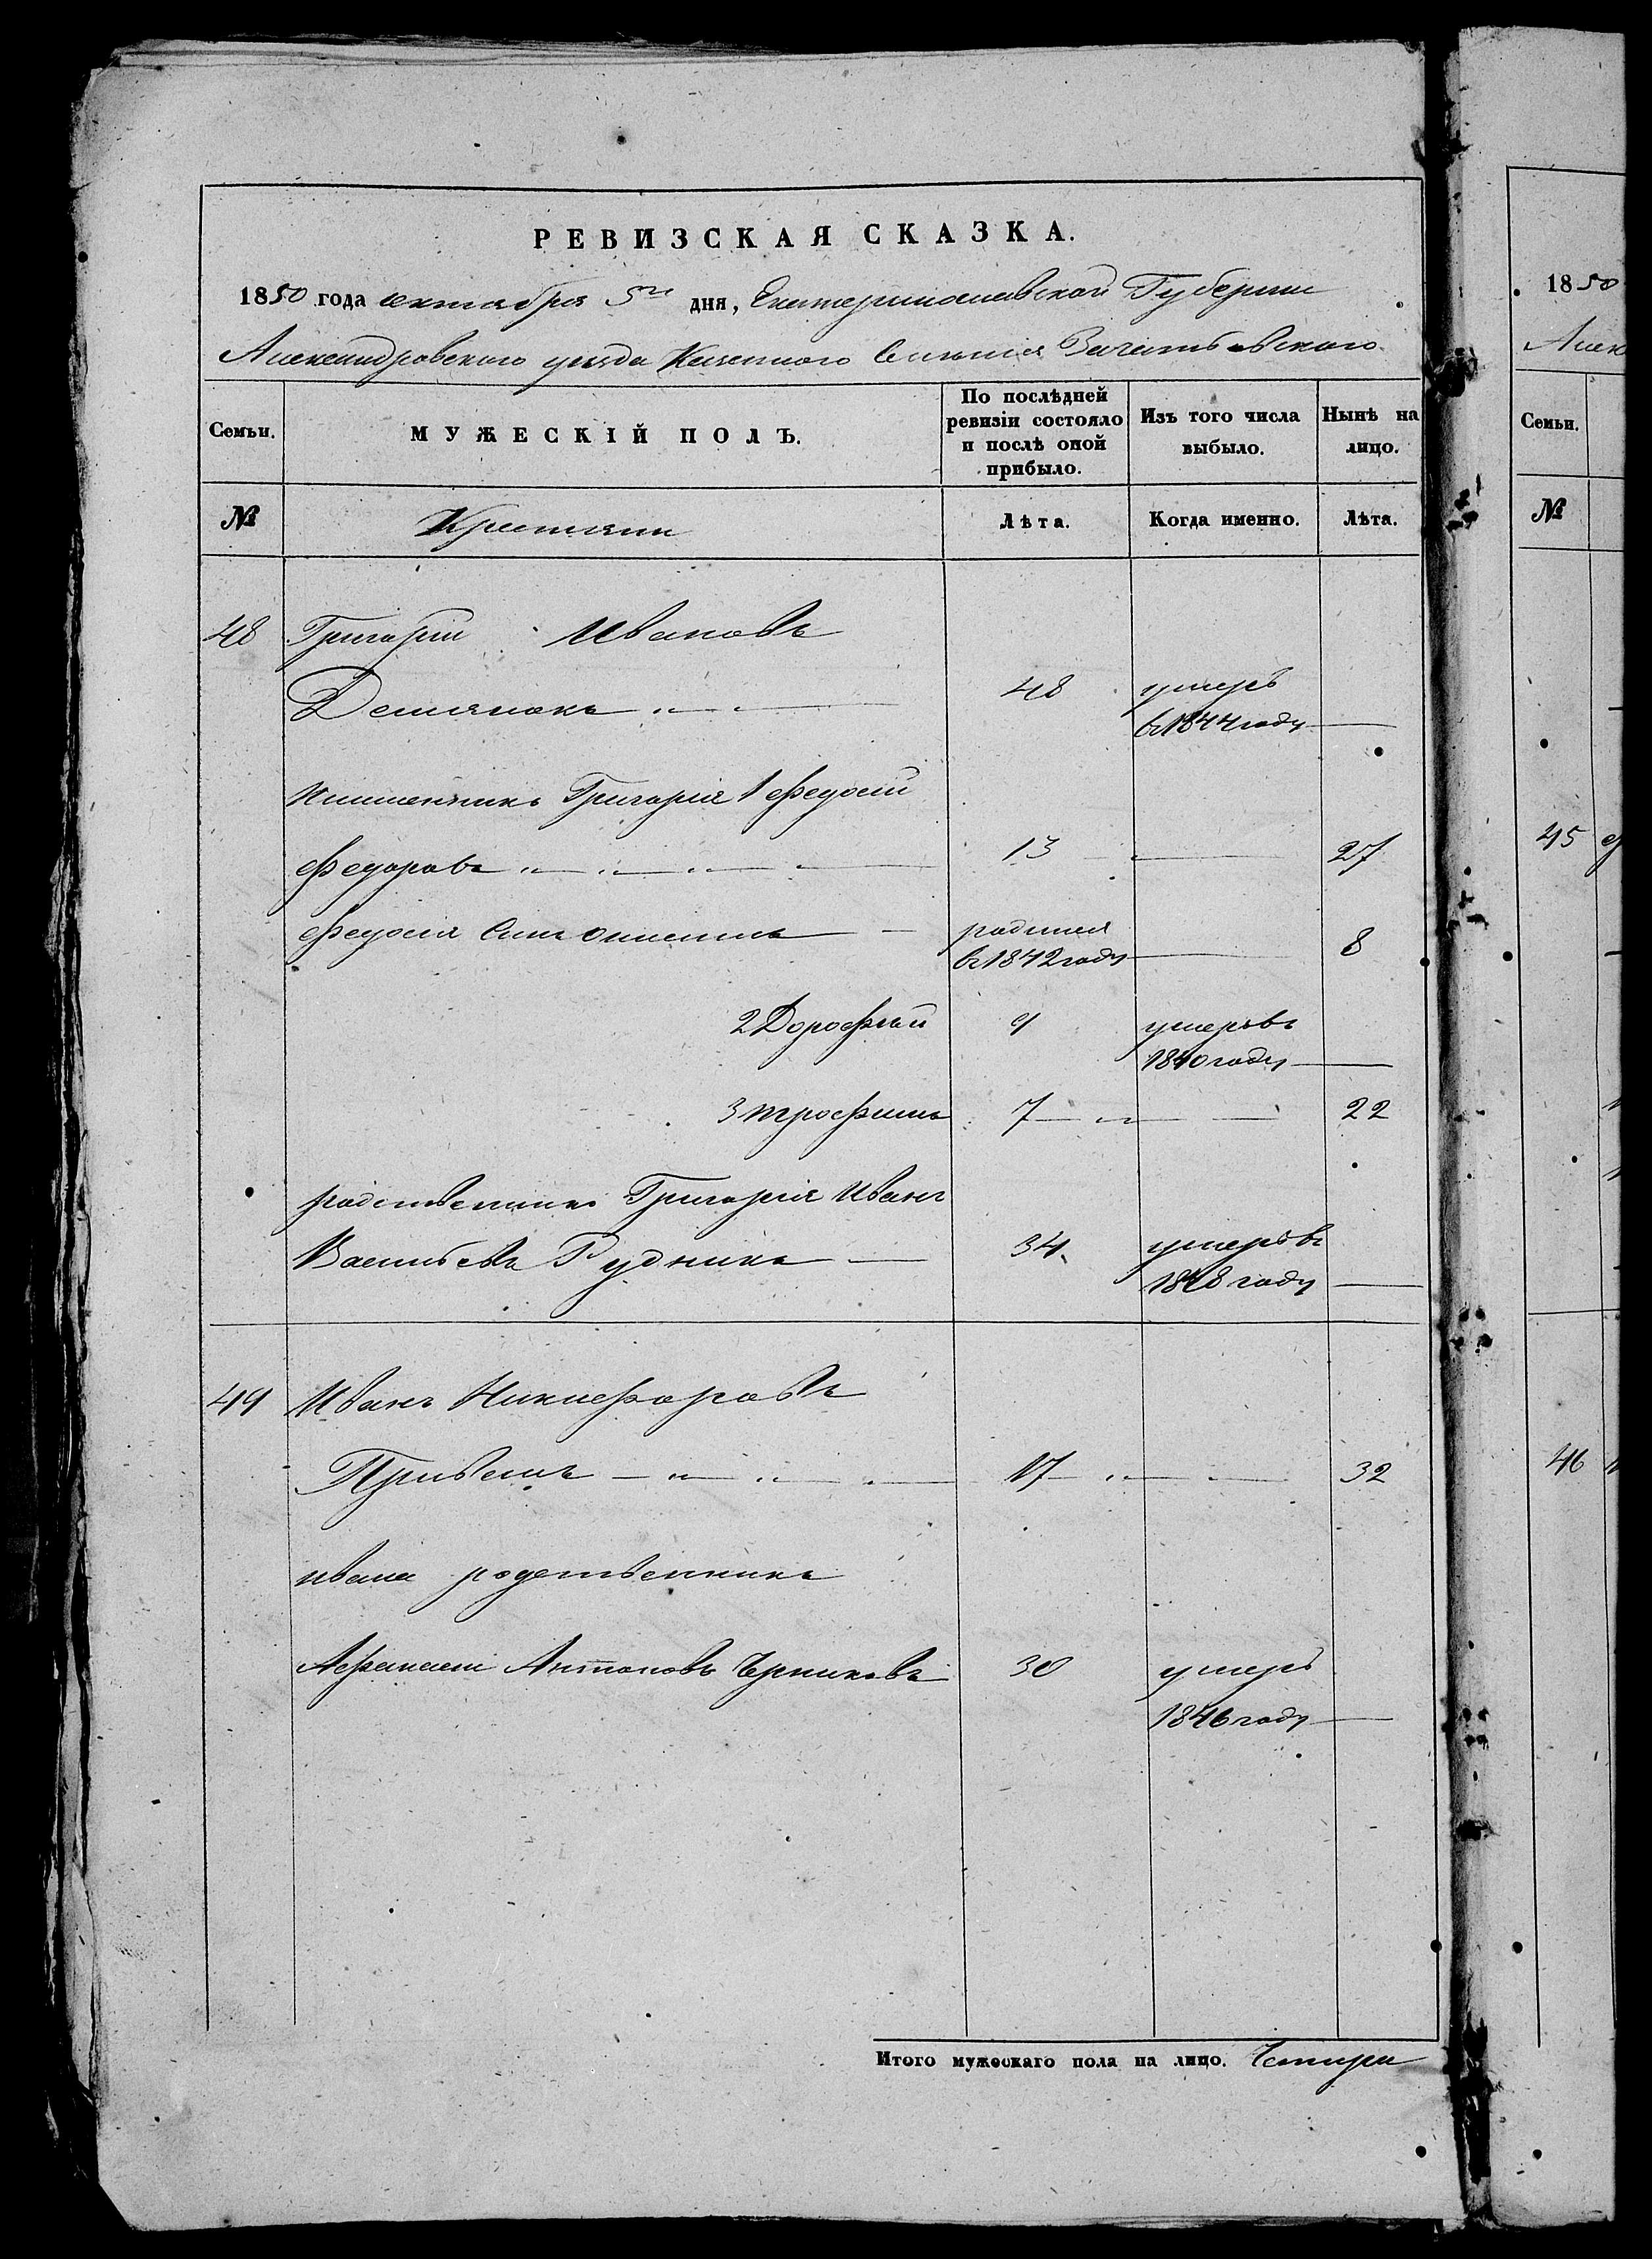 РЕВИЗСКАЯ СКАЗКА.
1850 года октября 5го дня, Екатеринославской Губернии
Александровского уезда Казенного Селения Зачатьевского
Семьи. МУЖЕСКІЙ ПОЛЪ. По послѣдней ревизіи состояло и послѣ оной прибыло. Изъ того числа выбыло. Нынѣ на лицо.
№ Крестяни Лѣта. Когда именно. Лѣта.
48 Григорій Ивановъ
Демянокъ 48 умеръ
въ 1844 году
Григорія 1 Федосій
Федоровъ 13 27
Федосія Сынъ Онисимъ родился 8
въ 1842 году
2 Дорофей 9 умеръ въ
1840 году
3 трофимъ 7 22
родственникъ Григорія Иванъ
Васильевъ Рудникъ 34 умеръ въ
1848 году
49 Иванъ Никифоровъ
17 32
ивана родственникъ
Афанасій Антоновъ Черниковъ 30 умеръ
1846 году
Итого мужескаго пола на лицо. Четыри
1850
Алек
Семьи.
№
45
46